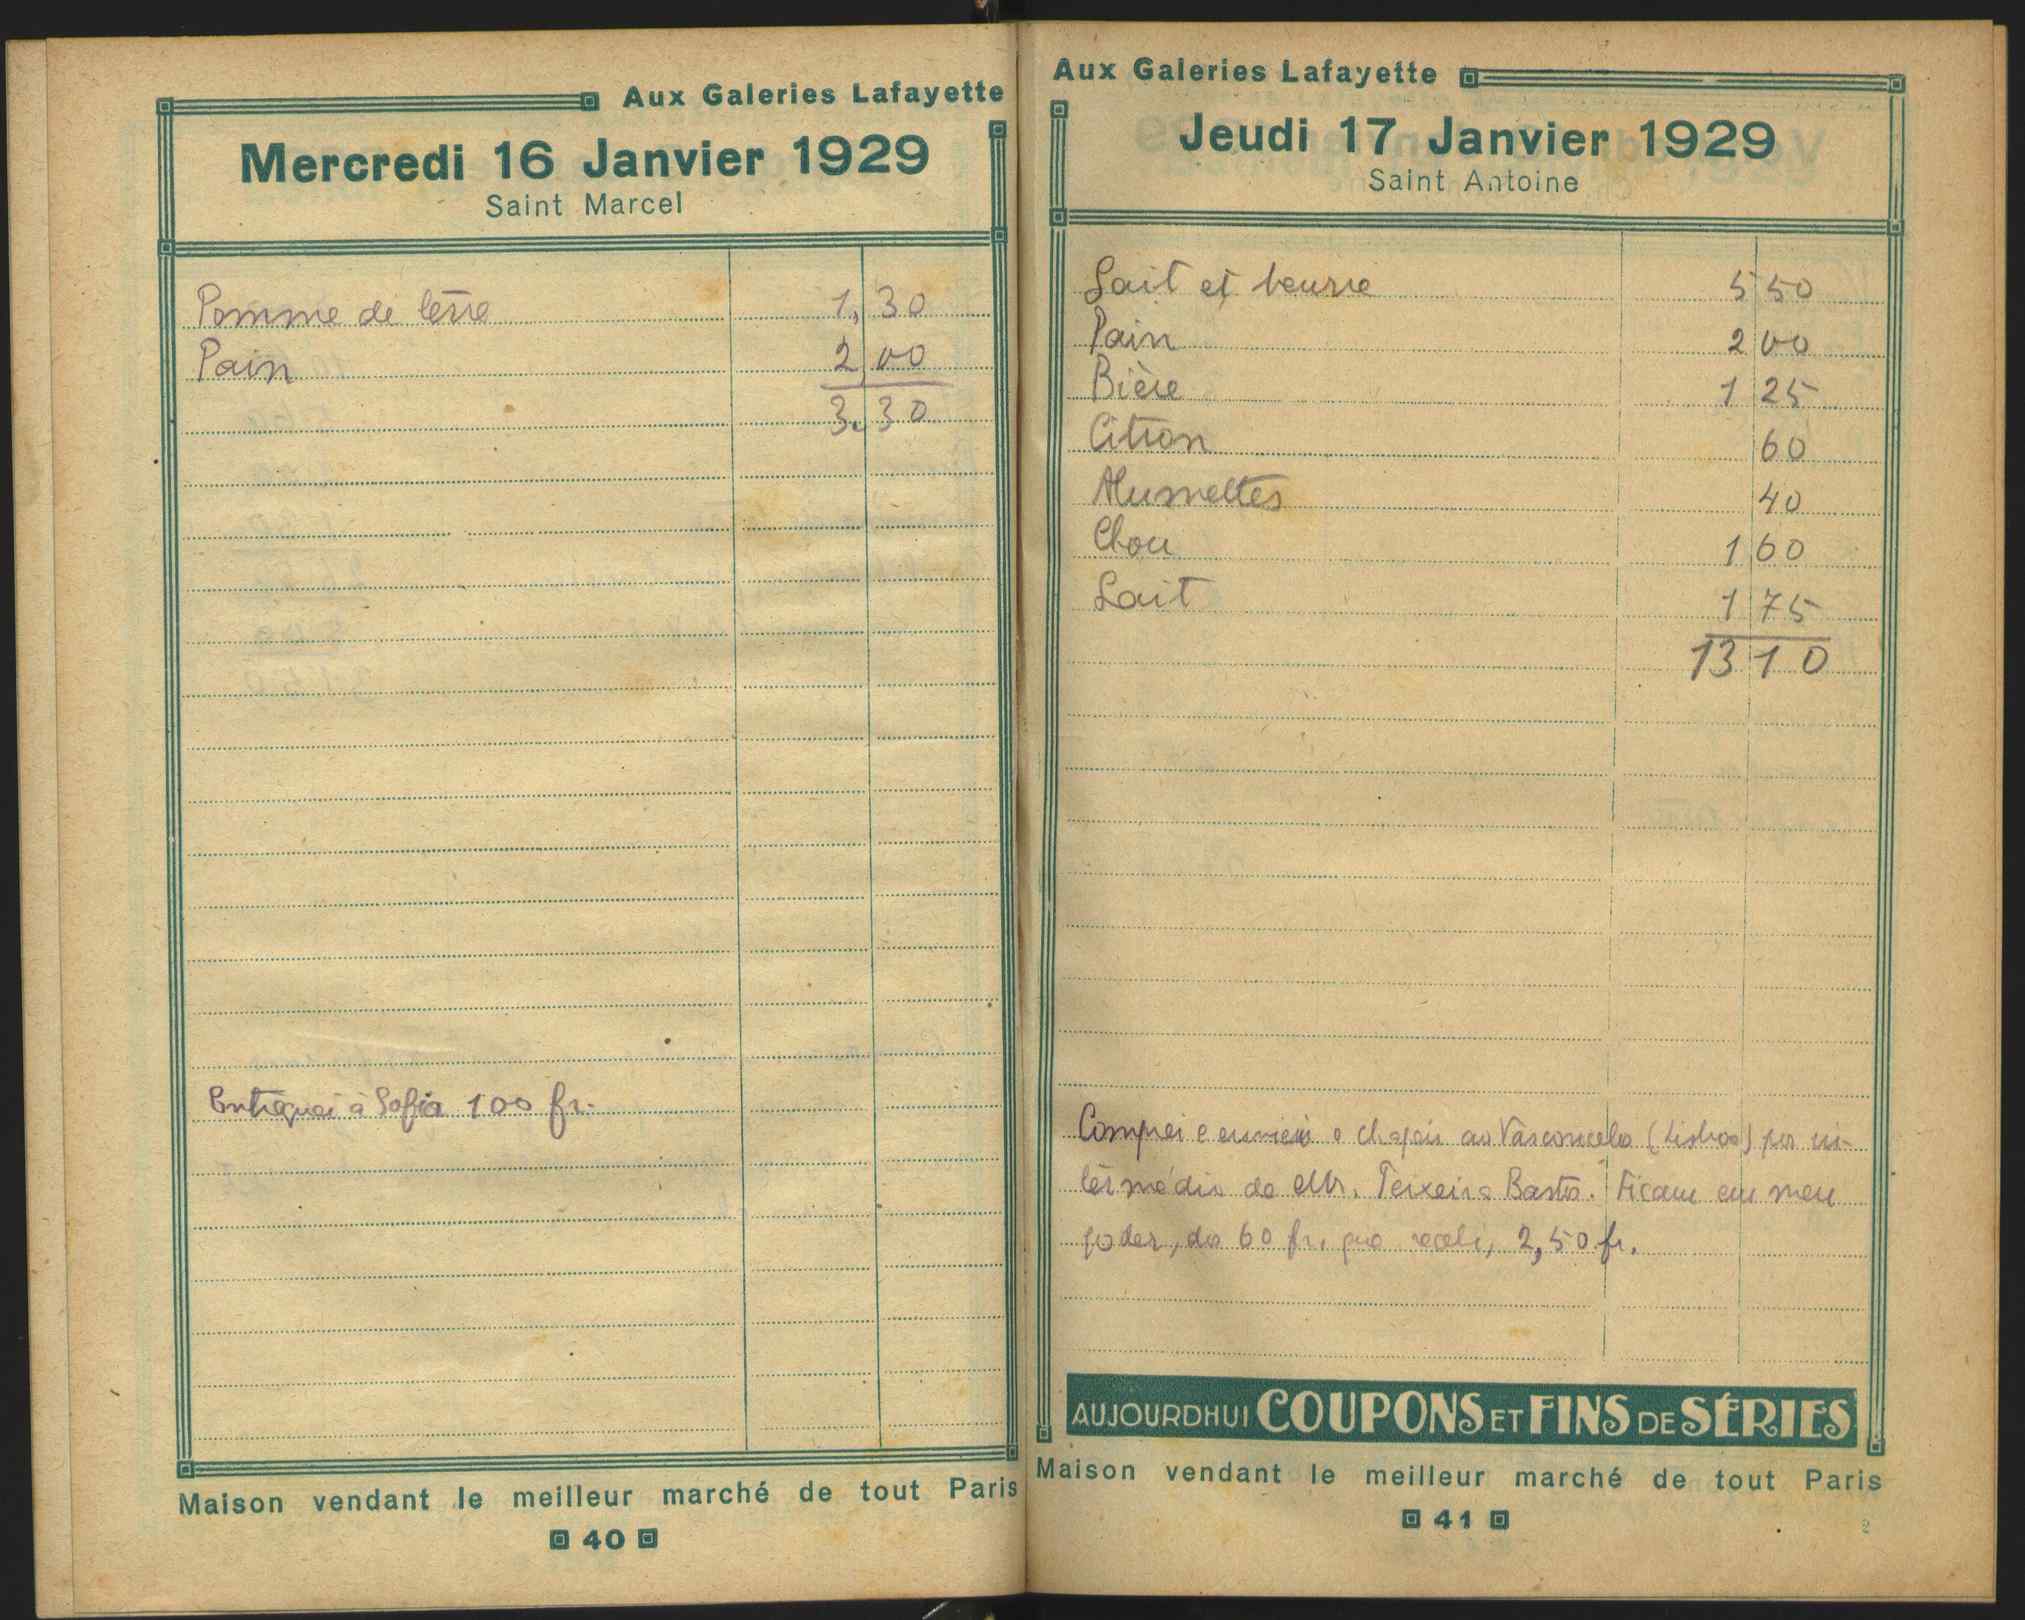 Aux Galeries Lafayette
Mercredi 16 Janvier 1929
Saint Marcel
Pomme de terre 1,30
Pain 2 00
3.30
Entreguei à Sofia 100 fr.
Maison vendant le meilleur marché de tout Paris
40
Aux Galeries Lafayette
Jeudi 17 Janvier 1929
Saint Antoine
Lait et beurre 5 50
Pain 2 00
Bière 1 25
Citron 60
Alumettes 40
Chou 1 60
Lait 1 75
13 10
Comprei e enviei o chapéu ao Vasconcelos (Lisboa) por in-
termédio do Mr. Teixeira Bastos. Ficam em meu
poder, dos 60 fr. que recebi, 2,50 fr.
AUJOURDHUI COUPONS ET FINS DE SÉRIES
Maison vendant le meilleur marché de tout Paris
41
2